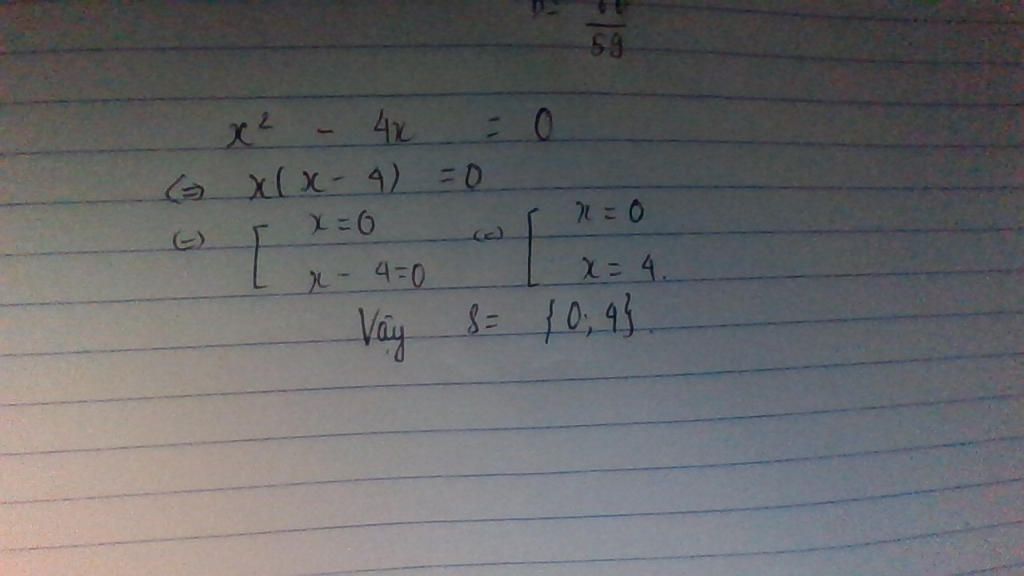 59
x² - 4x = 0
⇔ x(x - 4) = 0
⇔ [ x = 0 ⇔ [ x = 0
x - 4 = 0 x = 4.
Vậy S = {0; 4}.